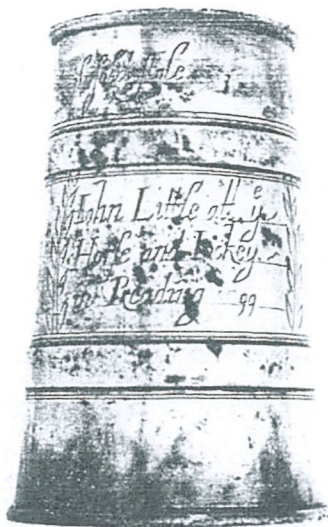 Iohn Little att yᵉ
Horſe and Iockey
in Reading 99